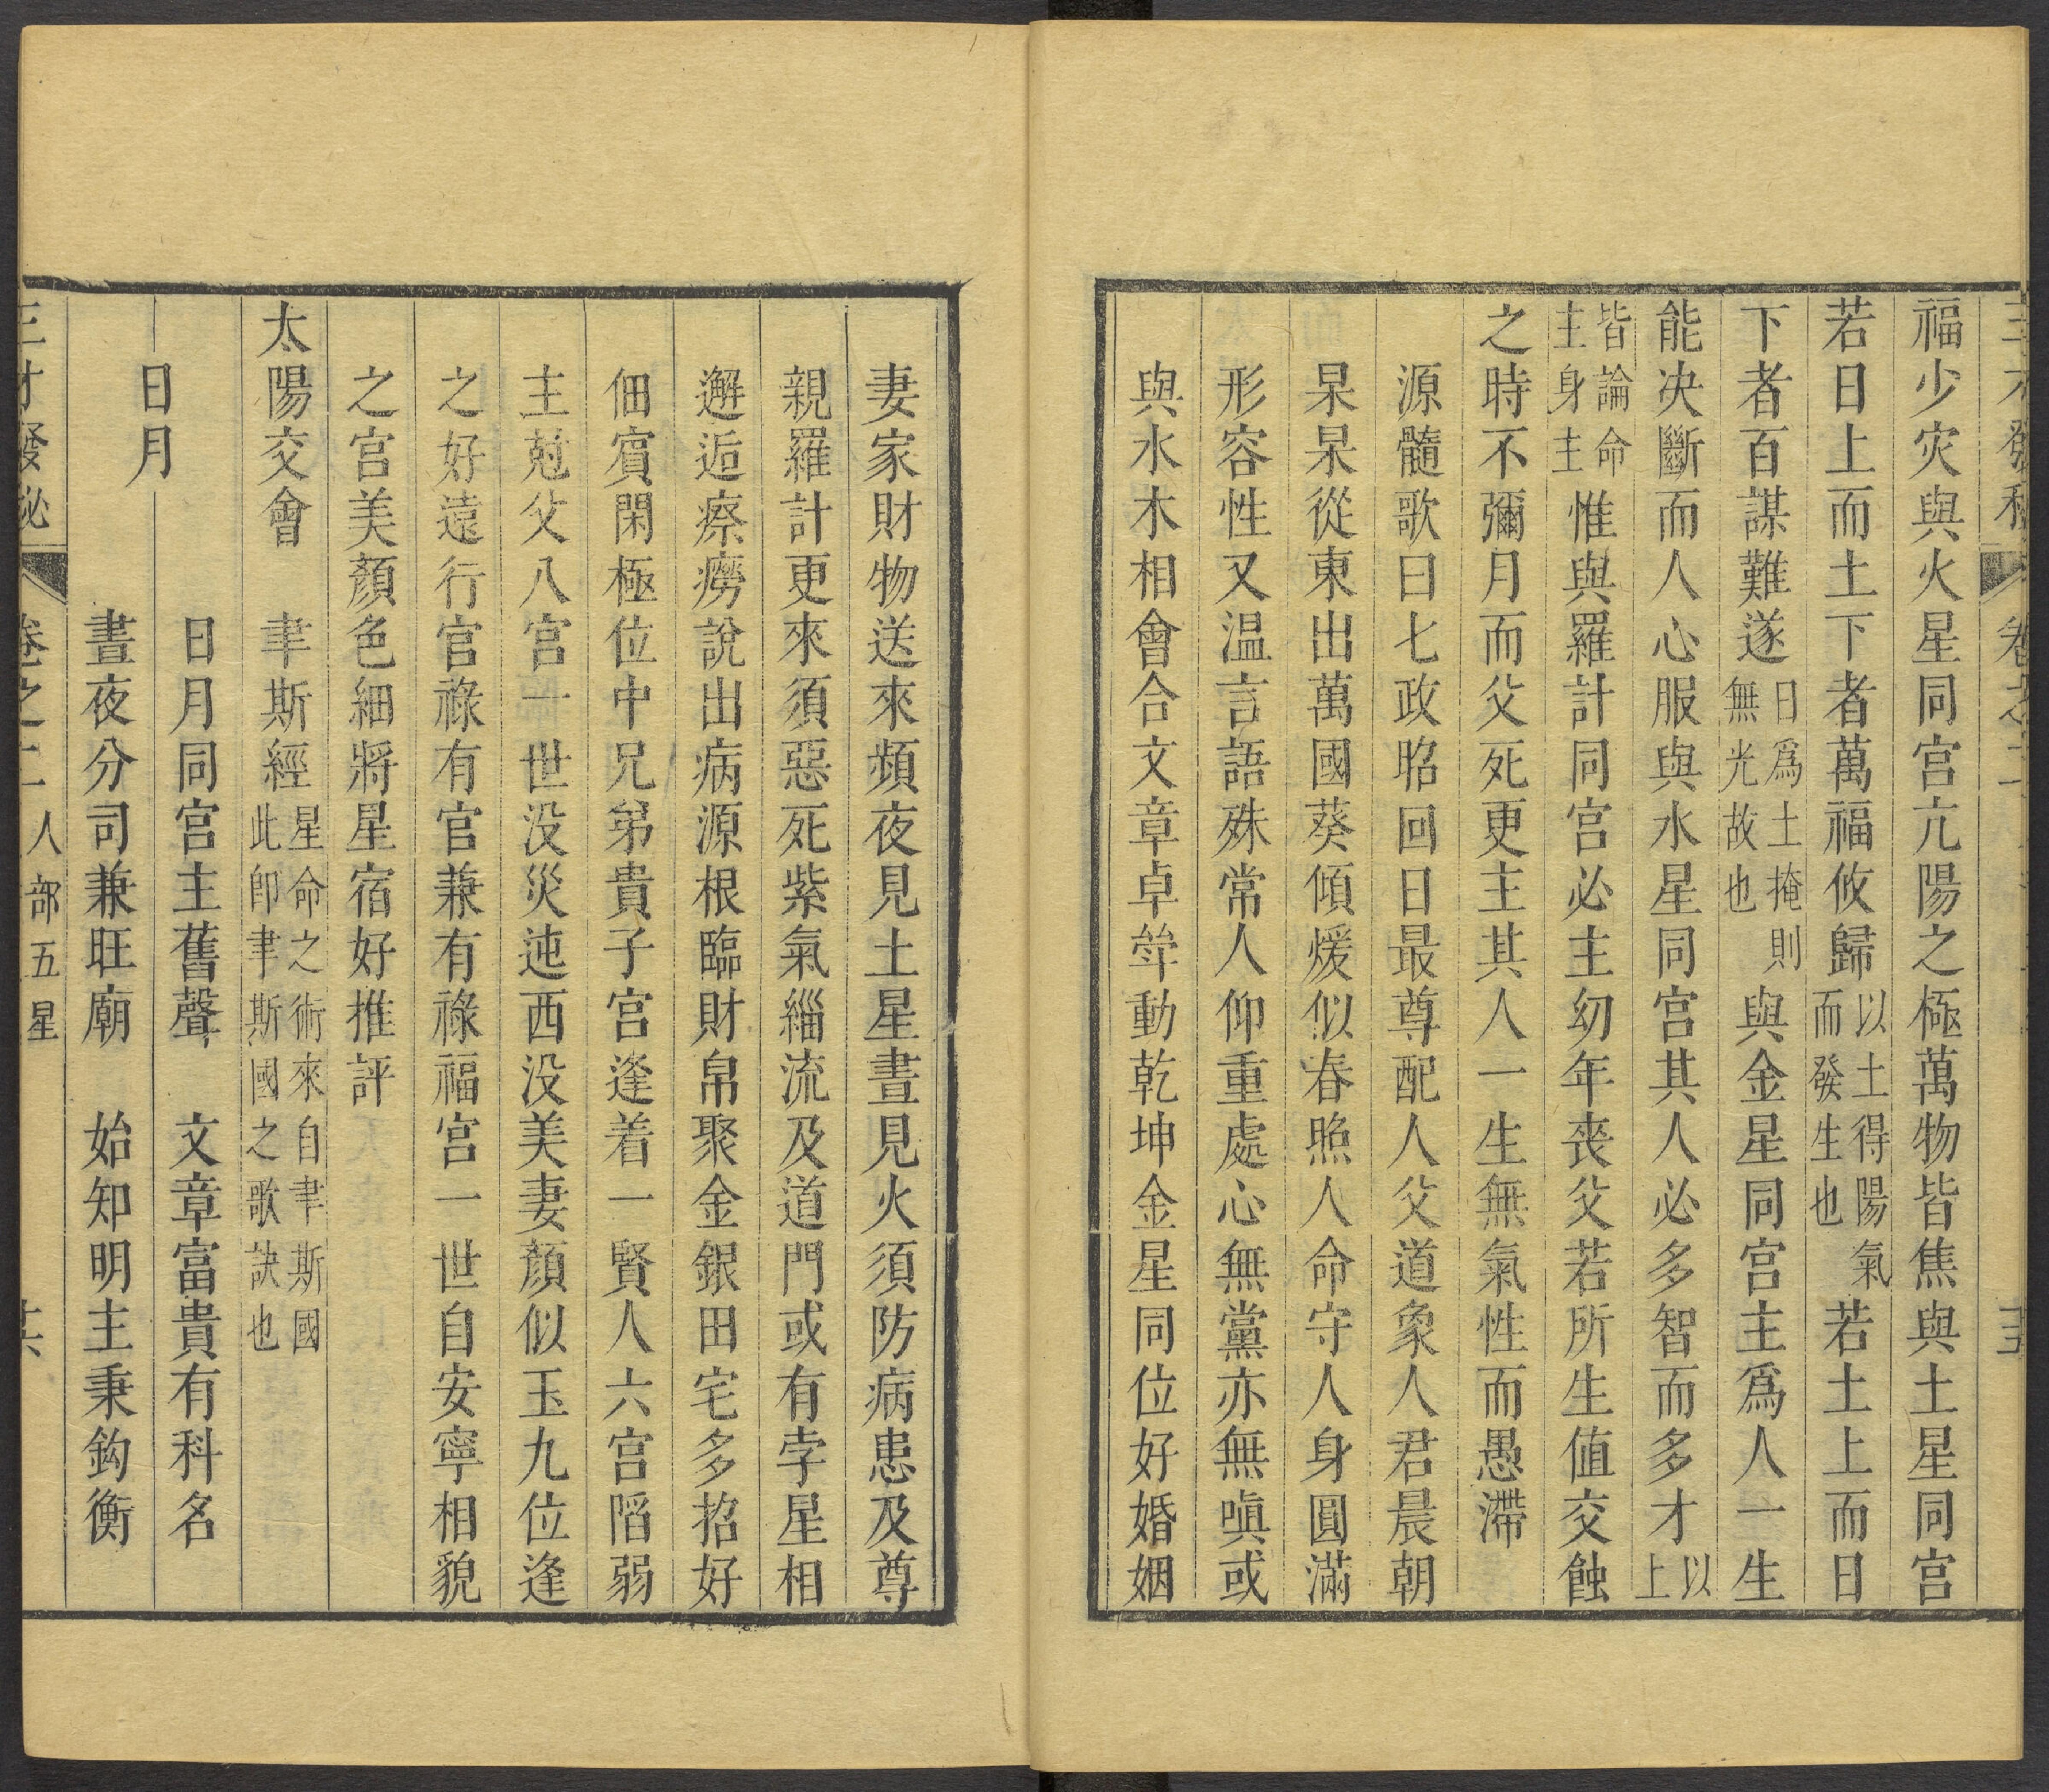 福少灾與火星同宫亢陽之極萬物皆焦與土星同宫
若日上而土下者萬福攸歸以土得陽氣而發生也若土上而日
下者百謀難遂日爲土掩則無光故也與金星同宫主爲人一生
能決斷而人心服與水星同宫其人必多智而多才以上
皆論命主身主惟與羅計同宫必主幼年喪父若所生值交蝕
之時不彌月而父死更主其人一生無氣性而愚滯
源髓歌曰七政昭回日最尊配人父道象人君晨朝
杲杲從東出萬國葵傾煖似春照人命守人身圓滿
形容性又温言語殊常人仰重處心無黨亦無嗔或
與水木相會合文章卓犖動乾坤金星同位好婚姻
妻家財物送來頻夜見土星晝見火須防病患及尊
親羅計更來須惡死紫氣緇流及道門或有孛星相
邂逅瘵癆說出病源根臨財帛聚金銀田宅多招好
佃賓閑極位中兄弟貴子宫逢着一賢人六宫陷弱
主尅父八宫一世没災迍西没美妻顏似玉九位逢
之好遠行官祿有官兼有祿福宫一世自安寧相貌
之宫美顏色細將星宿好推評
太陽交會 聿斯經星命之術來自聿斯國此卽聿斯國之歌訣也
日月
日月同宫主舊聲 文章富貴有科名
晝夜分司兼旺廟 始知明主秉鈎衡
三才發祕 卷之二 人部五星 十六